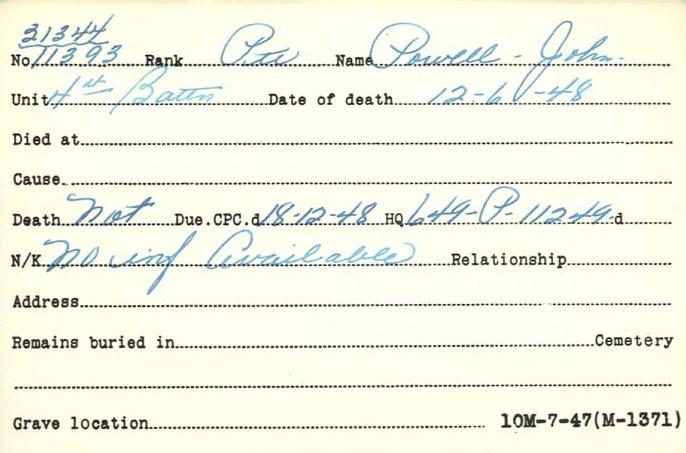 31344
No 11393 Rank Pte Name Powell - John.
Unit 4th Battn Date of death 12-6-48
Died at
Cause
Death Not Due.CPC.d 18-12-48 HQ 649-P-11249 d
N/K No inf Available Relationship
Address
Remains buried in Cemetery
Grave location 10M-7-47(M-1371)